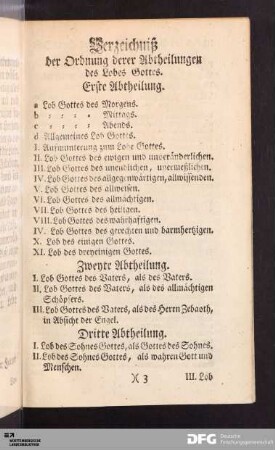 Verzeichniß
der Ordnung derer Abtheilungen
des Lobes Gottes.
Erste Abtheilung.
a Lob Gottes des Morgens.
b : : : : Mittags.
c : : : : Abends.
d Allgemeines Lob Gottes.
I. Aufmunterung zum Lobe Gottes.
II. Lob Gottes des ewigen und unveränderlichen.
III. Lob Gottes des unendlichen, unermeßlichen.
IV. Lob Gottes des allgegenwärtigen, allwissenden.
V. Lob Gottes des allweisen.
VI. Lob Gottes des allmächtigen.
VII. Lob Gottes des heiligen.
VIII. Lob Gottes des wahrhaftigen.
IV. Lob Gottes des gerechten und barmhertzigen.
X. Lob des einigen Gottes.
XI. Lob des dreyeinigen Gottes.
Zweyte Abtheilung.
I. Lob Gottes des Vaters, als des Vaters.
II. Lob Gottes des Vaters, als des allmächtigen
Schöpfers.
III. Lob Gottes des Vaters, als des Herrn Zebaoth,
in Absicht der Engel.
Dritte Abtheilung.
I. Lob des Sohnes Gottes, als Gottes des Sohnes.
II. Lob des Sohnes Gottes, als wahren Gott und
Menschen.
X 3 III. Lob
DFG Deutsche
Forschungsgemeinschaft